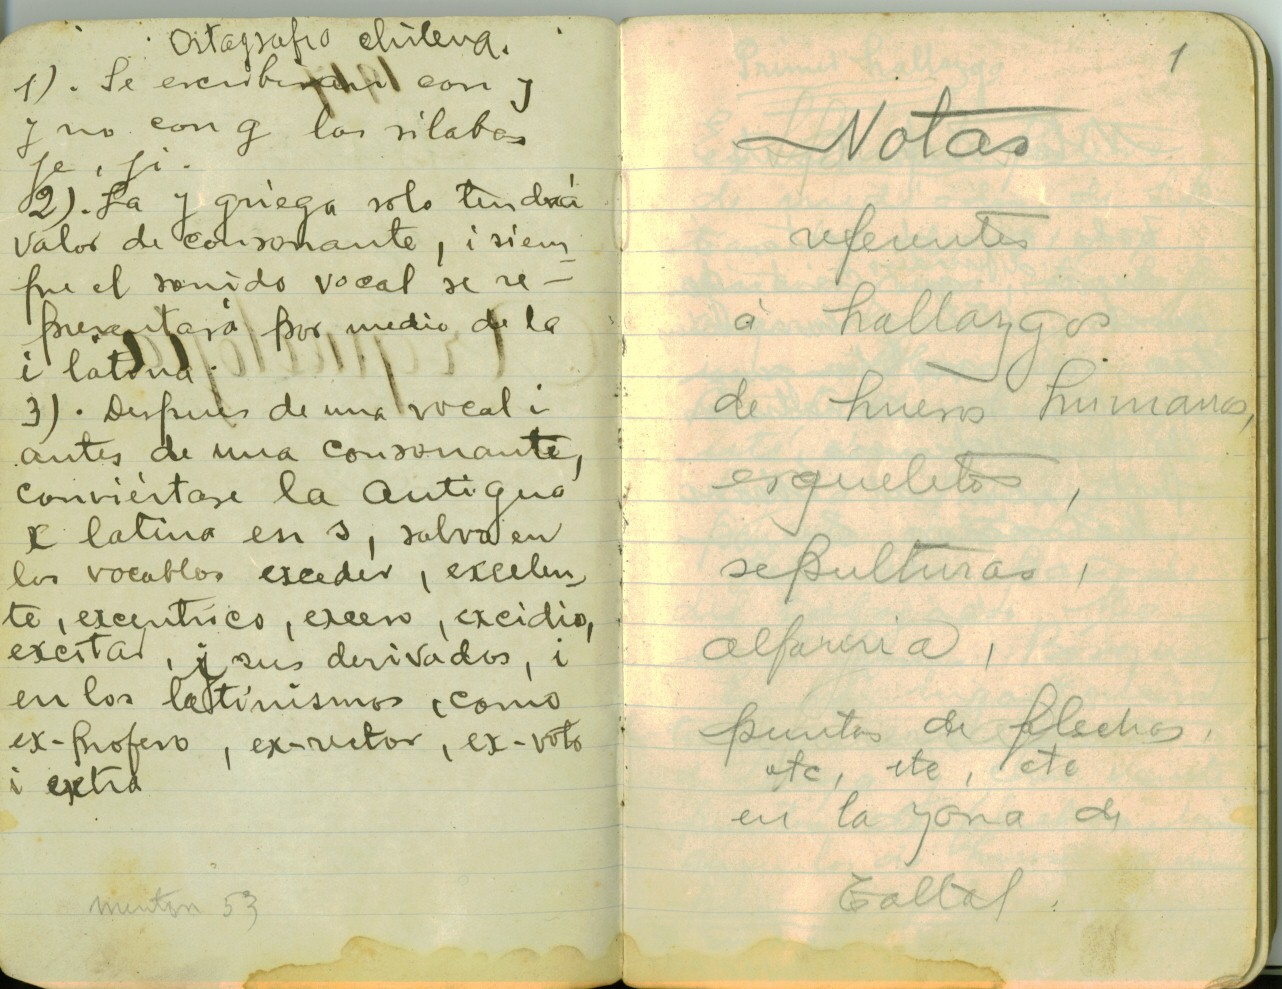 Ortografia chilena.
1). Se escribiran con j
y no con g las sílabas
je, ji.
2). La y griega solo tendrá
valor de consonante, i siem
pre el sonido vocal se re-
presentará por medio de la
i latina.
3). Despues de una vocal i
antes de una consonante,
conviértase la antigua
x latina en s, salvo en
los vocablos exceder, excelen-
te, excentrico, exceso, excidio,
excitar, i sus derivados, i
en los latinismos, como
ex-profeso, ex-rector, ex-voto
i extra
53
1
Notas
referentes
á hallazgos
de huesos humanos,
esqueletos,
sepulturas,
alfareria,
puntas de flechas,
etc, etc, etc
en la zona de
Taltal.